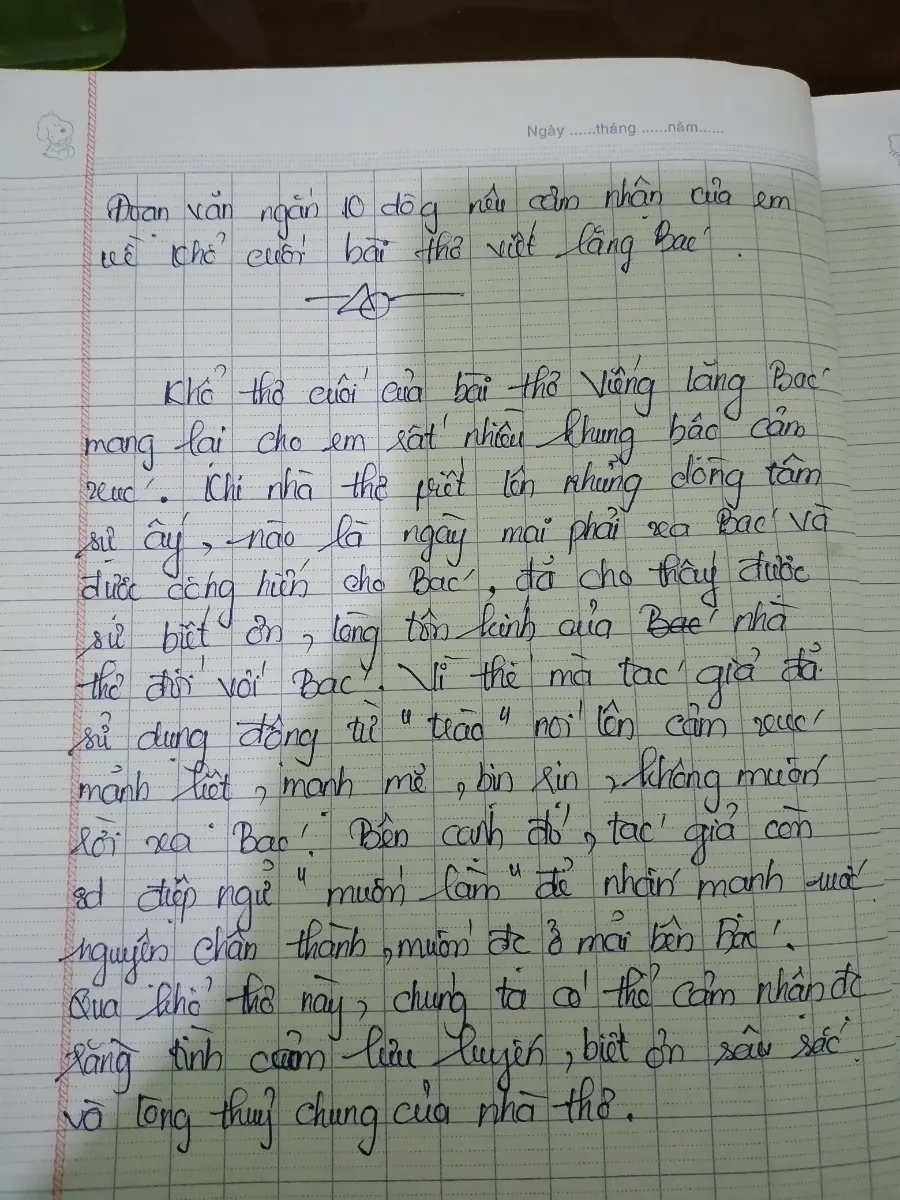 Ngày ......tháng ......năm......
Đoạn văn ngắn 10 dòg nêu cảm nhận của em
về khổ cuối bài thơ viết lăng Bác.
Khổ thơ cuối của bài thơ Viếng lăng Bác
mang lại cho em rất nhiều khung bậc cảm
xúc. Khi nhà thơ viết lên những dòng tâm
sự ấy, nào là ngày mai phải xa Bác và
được cống hiến cho Bác, đã cho thấy được
sự biết ơn, lòng tôn kính của Bác nhà
thơ đối với Bác. Vì thế mà tác giả đã
sử dụng động từ "trào" nói lên cảm xúc
mảnh liệt, mạnh mẻ, bịn rịn, không muốn
rời xa Bác. Bên cạnh đó, tác giả còn
sd điệp ngữ "muốn làm" để nhấn mạnh ước
nguyện chân thành, muốn đc ở mãi bên Bác.
Qua khổ thơ này, chúng ta có thể cảm nhận đc
rằng tình cảm lưu luyến, biết ơn sâu sắc
và lòng thuỷ chung của nhà thơ.